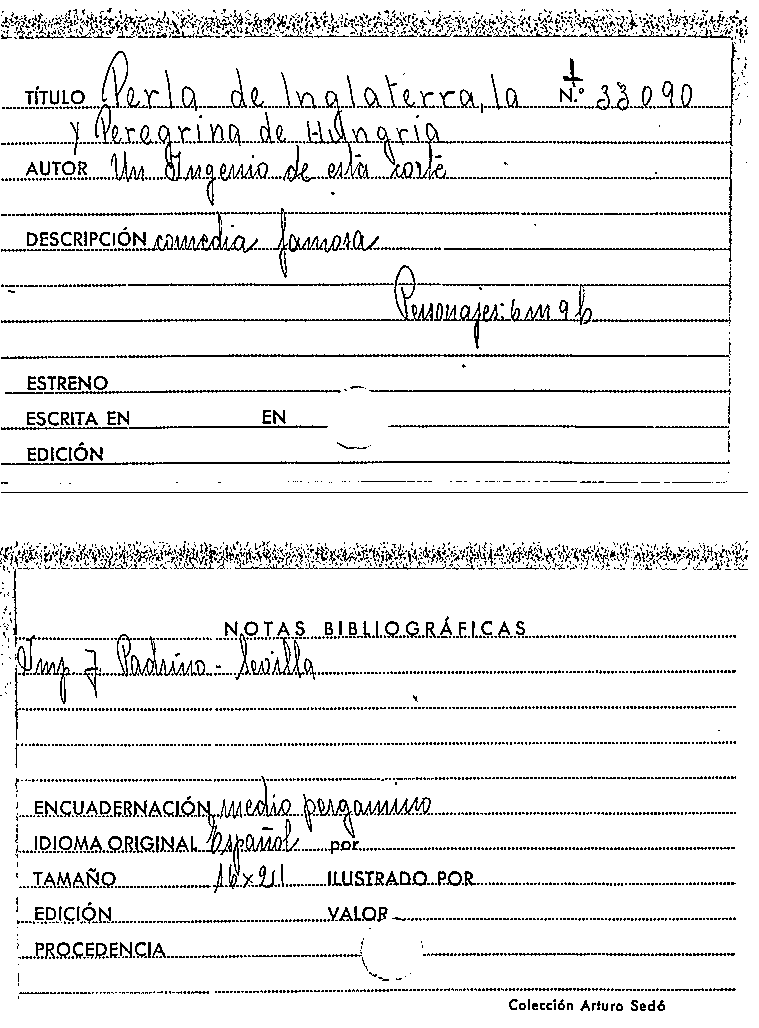 TÍTULO Perla de Inglaterra, la N.º 33090
y Peregrina de Hungria
AUTOR Un Ingenio de esta corte
DESCRIPCIÓN comedia famosa
Personajes: 6 m 9 h
ESTRENO
ESCRITA EN EN
EDICIÓN
NOTAS BIBLIOGRÁFICAS
Imp J. Padrino - Sevilla
ENCUADERNACIÓN medio pergamino
IDIOMA ORIGINAL Español por
TAMAÑO 16 x 21 ILUSTRADO POR
EDICIÓN VALOR
PROCEDENCIA
Colección Arturo Sedó